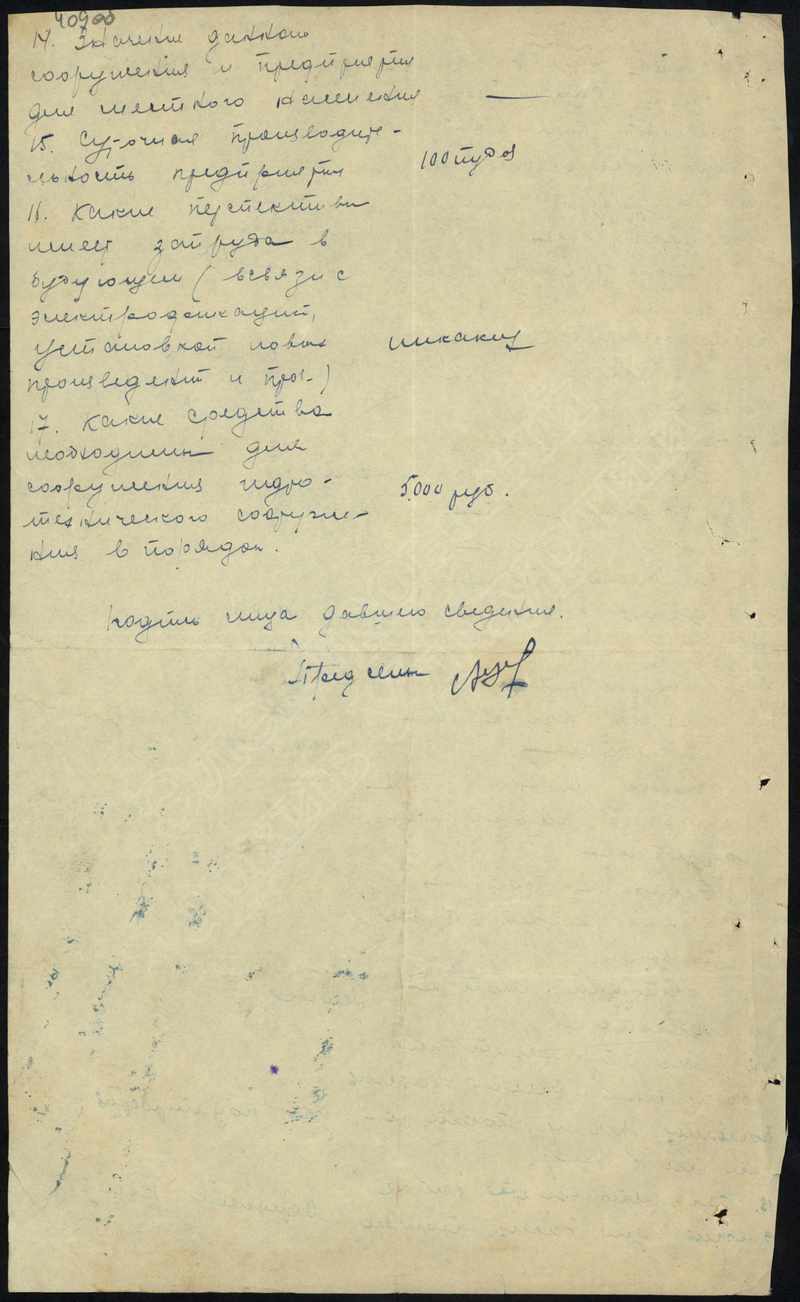 40900
14. Значение данного
сооружения и предприятия
для местного населения —
15. Суточная производите-
льность предприятия 100 пудов
16. Какие перспективы
имеет запруда в
будующем (в связи с
электрофикацией,
установкой новых никаких
произведений и проч.)
17. Какие средства
необходимы для
сооружения гидро- 5.000 руб.
технического сооруже-
ния в порядок.
Подпись лица давшего сведения.
Предселик